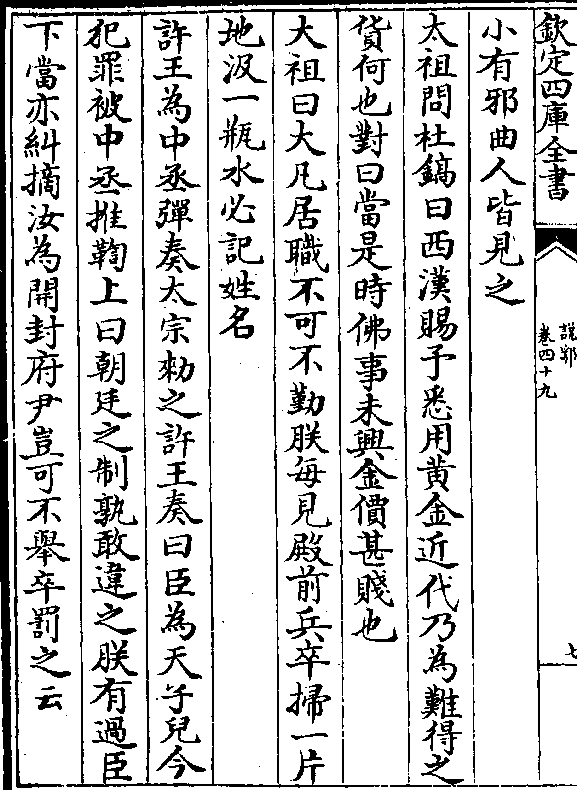 欽定四庫全書
説郛
卷四十九
七
小有邪曲人皆見之
太祖問杜鎬曰西漢賜予悉用黃金近代乃為難得之
貨何也對曰當是時佛事未興金價甚賤也
大祖曰大凡居職不可不勤朕每見殿前兵卒掃一片
地汲一瓶水必記姓名
許王為中丞彈奏太宗勑之許王奏曰臣為天子兒今
犯罪被中丞推鞫上曰朝廷之制孰敢違之朕有過臣
下當亦糾摘汝為開封府尹豈可不舉卒罰之云